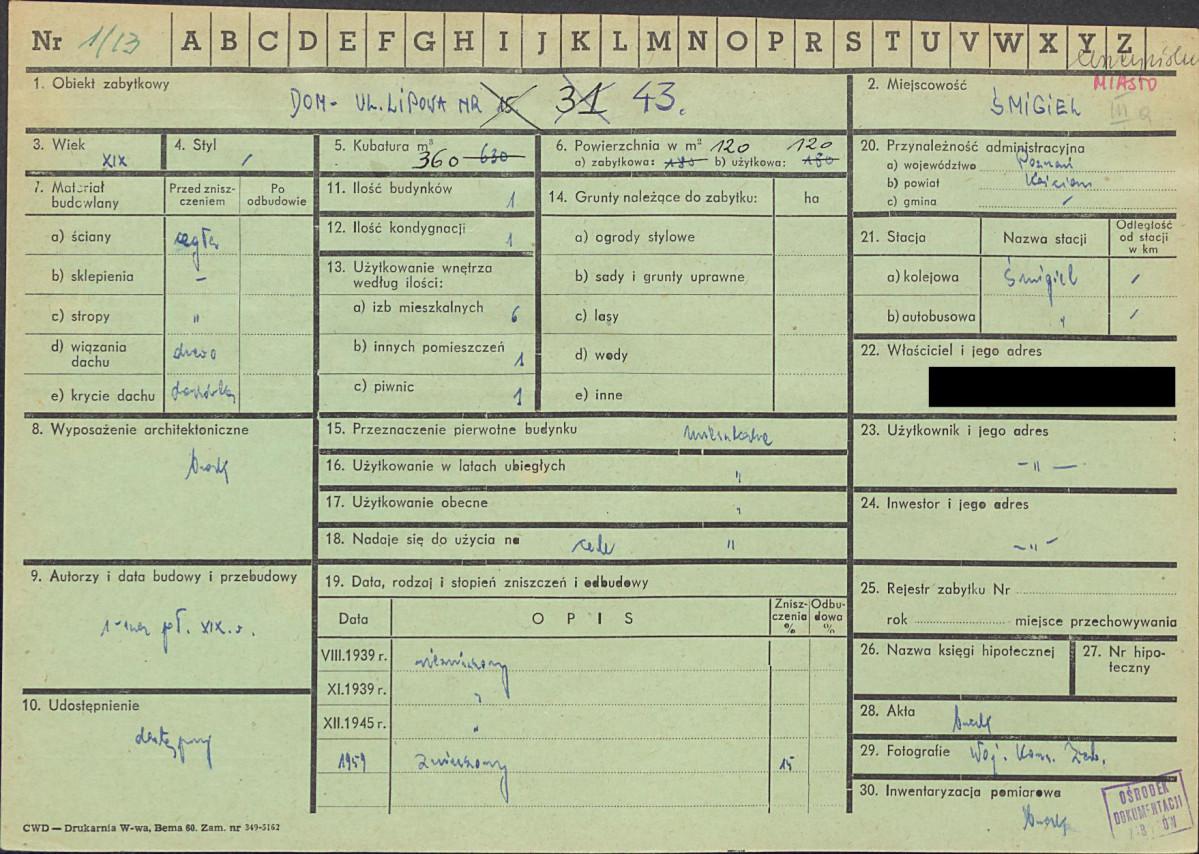 Nr 1/13 A B C D E F G H I J K L M N O P R S T U V W X Y Z
1. Obiekt zabytkowy
DOM - UL. LIPOWA NR 15 31 43.
2. Miejscowość MIASTO
ŚMIGIEL III
3. Wiek
XIX
4. Styl
/
5. Kubatura m³
360 630
6. Powierzchnia w m² 120 120
a) zabytkowa: 180 b) użytkowa: 180
20. Przynależność administracyjna
a) województwo Poznań
b) powiat Kościan
c) gmina /
7. Materiał budowlany
Przed zniszczeniem
Po odbudowie
a) ściany cegła
b) sklepienia –
c) stropy "
d) wiązania dachu drewo
e) krycie dachu dachówka
11. Ilość budynków 1
12. Ilość kondygnacji 1
13. Użytkowanie wnętrza
według ilości:
a) izb mieszkalnych 6
b) innych pomieszczeń 1
c) piwnic 1
14. Grunty należące do zabytku: ha
a) ogrody stylowe
b) sady i grunty uprawne
c) lasy
d) wody
e) inne
21. Stacja Nazwa stacji Odległość od stacji w km
a) kolejowa Śmigiel /
b) autobusowa " /
22. Właściciel i jego adres
8. Wyposażenie architektoniczne
brak
15. Przeznaczenie pierwotne budynku mieszkalne
16. Użytkowanie w latach ubiegłych "
17. Użytkowanie obecne "
18. Nadaje się do użycia na cele "
23. Użytkownik i jego adres
– " –
24. Inwestor i jego adres
– " –
9. Autorzy i data budowy i przebudowy
1-wsza poł. XIX w.
19. Data, rodzaj i stopień zniszczeń i odbudowy
Data OPIS Zniszczenia % Odbudowa %
VIII.1939 r. niezniszczony
XI.1939 r. "
XII.1945 r. "
1959 zniszczony 15
25. Rejestr zabytku Nr
rok miejsce przechowywania
26. Nazwa księgi hipotecznej
27. Nr hipoteczny
10. Udostępnienie
dostępny
28. Akta brak
29. Fotografie Woj. Kons. Zab.
30. Inwentaryzacja pomiarowa
brak
OŚRODEK
DOKUMENTACJI
ZABYTKÓW
CWD — Drukarnia W-wa, Bema 60. Zam. nr 349-5162